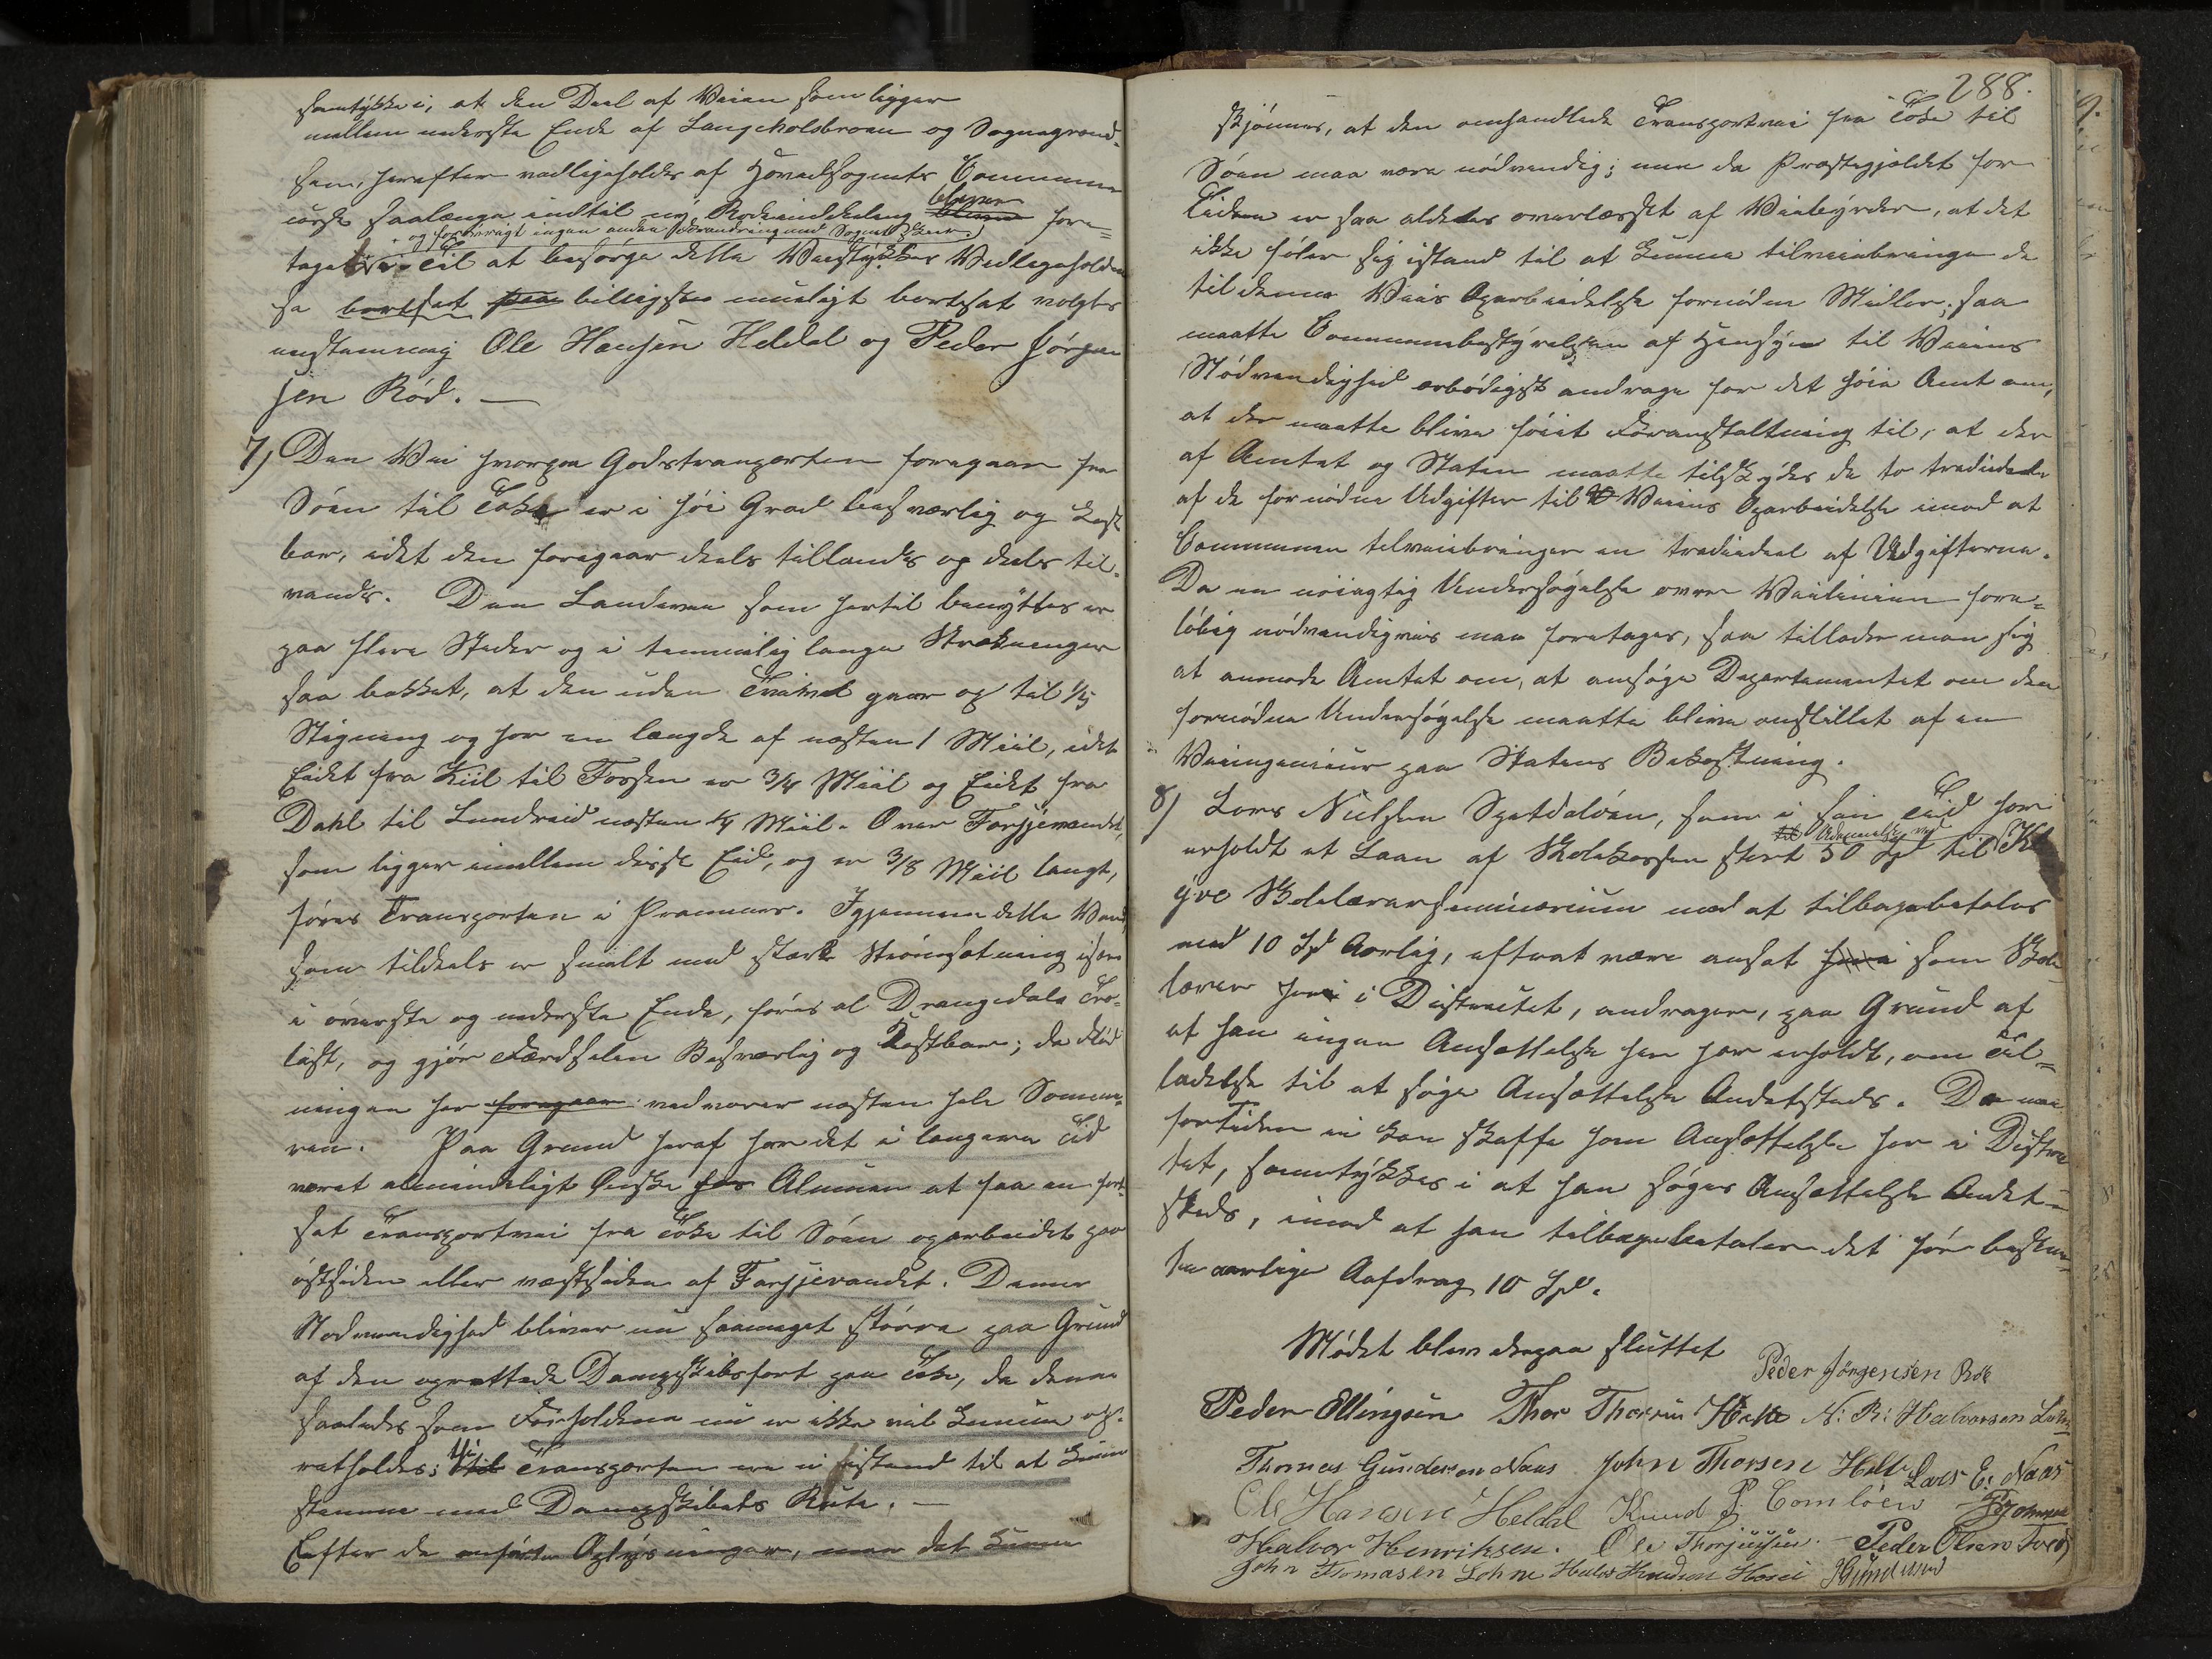 samtykke i, at den Deel af Veien som ligger
mellem nederste Ende af Langeholsbroen og Sognegrænd-
sen, herefter vedligeholdes af Hovedsognets Commune
saalænge indtil ny Rodeinddeling bliver fore-
og forøvrigt ingen anden Forandring med Sognet skeer.
tagen. Til at besørge dette Veistykkes Vedligeholdel-
se bortsat billigst mueligt bortsat valgtes
eenstemmig Ole Hansen Heldal og Peder Jörgen
sen Röd. —
7) Den Vei hvorpaa Godstransporten foregaar fra
Söen til Toke er i höi Grad besværlig og kost-
bar, idet den foregaar deels tillands og deels til-
vands. Den Landevei som hertil benyttes er
paa flere Steder og i temmelig lange Strækninger
saa bakket, at den uden Tvivl gaar op til 1/5
Stigning og har en længde af næsten 1 Miil, idet
Eidet fra Kiil til Fossen er 3/4 Miil og Eidet fra
Dahl til Lundereid næsten 1/4 Miil. Over Farsjevandet,
som ligger imellem disse Eid, og er 3/8 Miil langt,
föres Transporten i Prammer. Igjennem dette Vand,
som tildeels er smalt med stærk Strömsætning især
i överste og nederste Ende, föres al Drangedals Tro-
last, og gjör Færdselen Besværlig og Kostbar; da Flöd-
ningen her foregaar vedvarer næsten hele Somme-
ren. Paa Grund heraf har det i længere Tid
været almindeligt Önske hos Almuen at faa en fort-
sat Transportvei fra Toke til Söen oparbeidet paa
östsiden eller vestsiden af Farsjevandet. Denne
Nödvendighed bliver nu saameget störra paa Grund
af den oprettede Dampskibsfart paa Toke, da denne
saaledes som Forholdene nu er ikke vil kunne op-
retholdes; thi Transporten er ei istand til at kunne
stemme med Dampskibets Rute. —
Efter de anförte Oplysninger, maa det kunne
288.
skjönnes, at den omhandlede Transportvei fra Toke til
Söen maa være nödvendig; men da Præstegjeldet for
Tiden er saa aldeles overlæsset af Veibyrder, at det
ikke föler sig istand til at kunne tilveiebringe de
til denne Veis Oparbeidelse fornödne Midler, saa
maatte Communebestyrelsen af Hensyn til Veiens
Nödvendighed ærbödigst andrage for det höie Amt om,
at der maatte blive föiet Foranstaltning til, at der
af Amtet og Staten maatte tilskydes de to trediedele
af de fornödne Udgifter til Veiens Oparbeidelse imod at
Communen tilveiebringer en trediedeel af Udgifterne.
Da en nöiagtig Undersögelse over Veilinien fore-
löbig nödvendigviis maa foretages, saa tillader man sig
at anmode Amtet om, at ansöge Departementet om den
fornödne Undersögelse maatte blive anstillet af en
Veiingenieur paa Statens Bekostning.
8) Lars Nielsen, som i sin Tid har
til Udannelse ved
erholdt et Laan af Skolekassen stort 50 Spd til
Skolelærerseminarium med at tilbagebetales
med 10 Spd Aarlig, efterat være ansat som Skole
lærer her i Districtet, andrager, paa Grund af
at han ingen Ansættelse her har erholdt, om Til-
ladelse til at söge Ansættelse Andetsteds. Da man
for Tiden ei kan skaffe ham Ansættelse her i Distric-
tet, samtykkes i at han söger Ansættelse Andet-
steds, imod at han tilbagebetaler det för bestem-
te aarlige Aafdrag 10 Spd.
Mödet blev derpaa sluttet
Peder Jörgensen Röd
Peder Ellingsen Thor Thorsen Helle N: R: Halvorsen
Thomas Gundersen Naas John Thorsen Helle Lars E: Naas
Ole Hansen Heldal Knud P: Tomlöen
Halvor Henriksen. Ole Thorjussen. Peder Olsen
John Tomasen Lohne Halvor Knudsen Hosei Gundersen